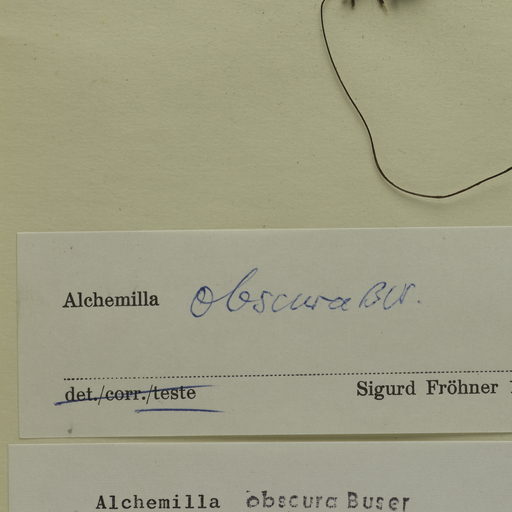 Alchemilla obscura Bus.
det./corr./teste Sigurd Fröhner
Alchemilla obscura Buser